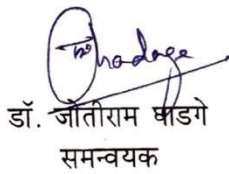 डॉ. जोतीराम घाडगे
समन्वयक